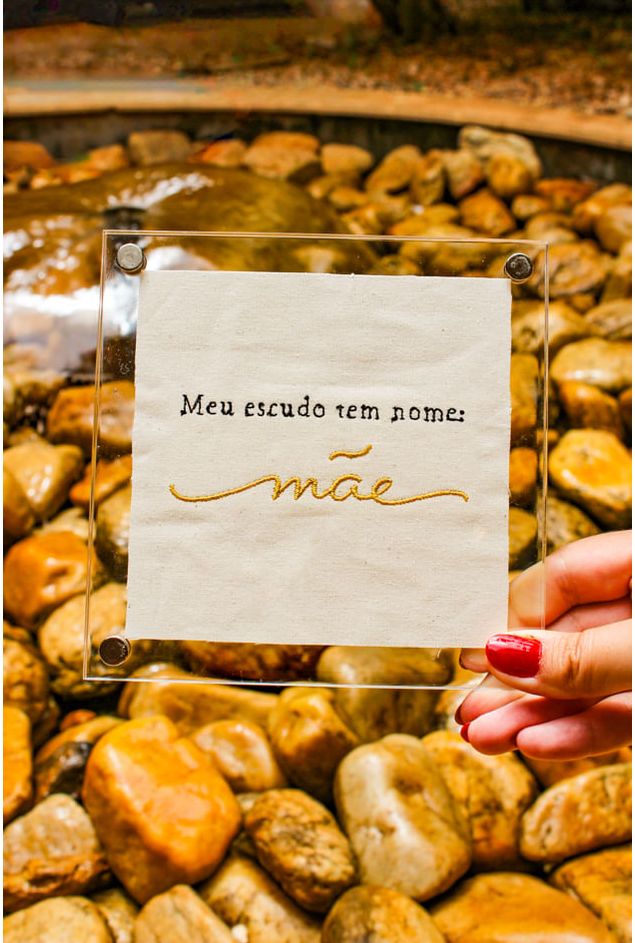 Meu escudo tem nome:
mãe